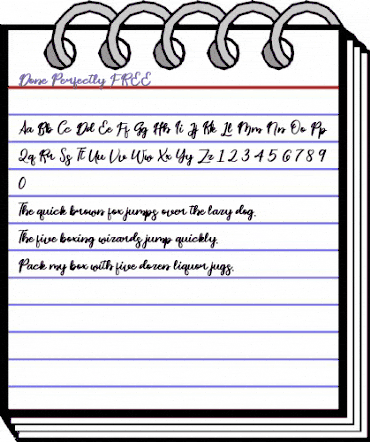 Done Perfectly FREE
Aa Bb Cc Dd Ee Ff Gg Hh Ii Jj Kk Ll Mm Nn Oo Pp
Qq Rr Ss Tt Uu Vv Ww Xx Yy Zz 1 2 3 4 5 6 7 8 9
0
The quick brown fox jumps over the lazy dog.
The five boxing wizards jump quickly.
Pack my box with five dozen liquor jugs.